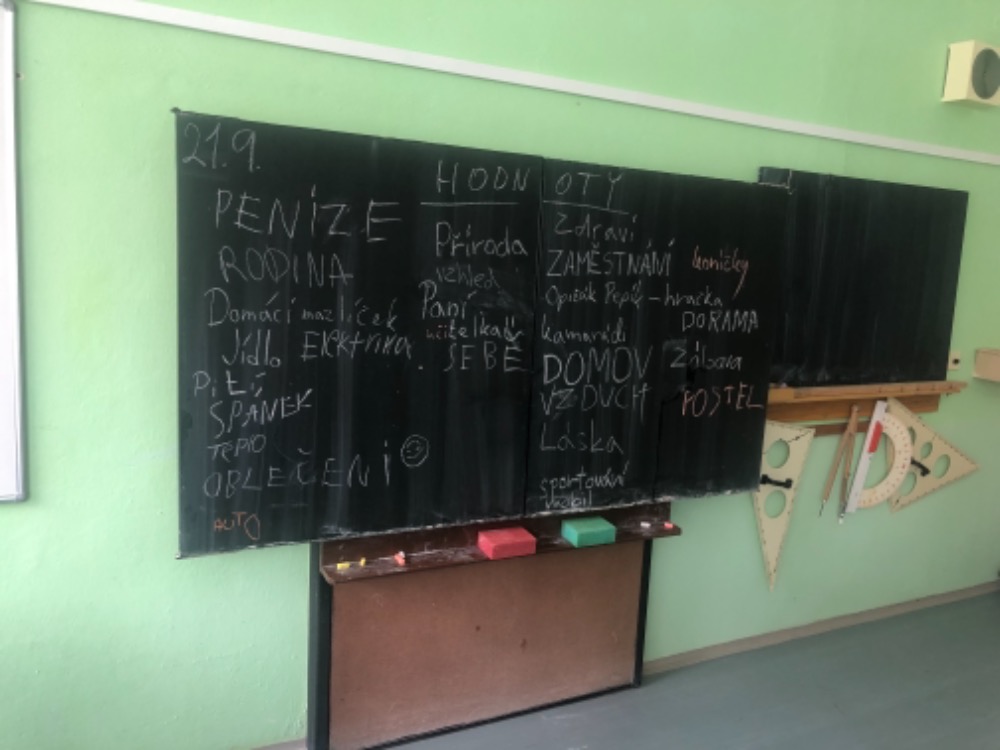 21.9.
HODNOTY
PENÍZE
RODINA
Domácí mazlíček
Jídlo Elektrika
Pití
SPÁNEK
TEPLO
OBLEČENÍ
AUTO
Příroda
vzhled
Paní
učitelka
SEBE
Zdraví
ZAMĚSTNÁNÍ
koníčky
Opičák Pepík - hračka
kamarádi
DORAMA
DOMOV
Zábava
VZDUCH
POSTEL
Láska
sportování